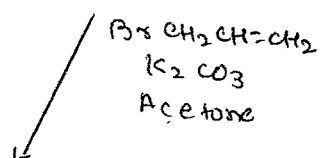 Br CH2CH=CH2
K2 CO3
Acetone